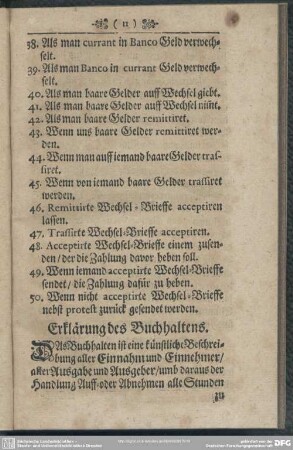 ( 11 )
38. Als man currant in Banco Geld verwech-
selt.
39. Als man Banco in currant Geld verwech-
selt.
40. Als man baare Gelder auff Wechsel giebt.
41. Als man baare Gelder auff Wechsel nimt.
42. Als man baare Gelder remittiret.
43. Wenn uns baare Gelder remittiret wer-
den.
44. Wenn man auff iemand baare Gelder tras-
siret.
45. Wenn von iemand baare Gelder trassiret
werden.
46. Remittirte Wechsel-Brieffe acceptiren
lassen.
47. Trassirte Wechsel-Brieffe acceptiren.
48. Acceptirte Wechsel-Brieffe einem zusen-
den/ der die Zahlung davor heben soll.
49. Wenn iemand acceptirte Wechsel-Brieffe
sendet/ die Zahlung dafür zu heben.
50. Wenn nicht acceptirte Wechsel-Brieffe
nebst protest zurück gesendet werden.
Erklärung des Buchhaltens.
DAs Buchhalten ist eine künstliche Beschrei-
bung aller Einnahm und Einnehmer/
aller Ausgabe und Ausgeber/ umb daraus der
Handlung Auff- oder Abnehmen alle Stunden
zu